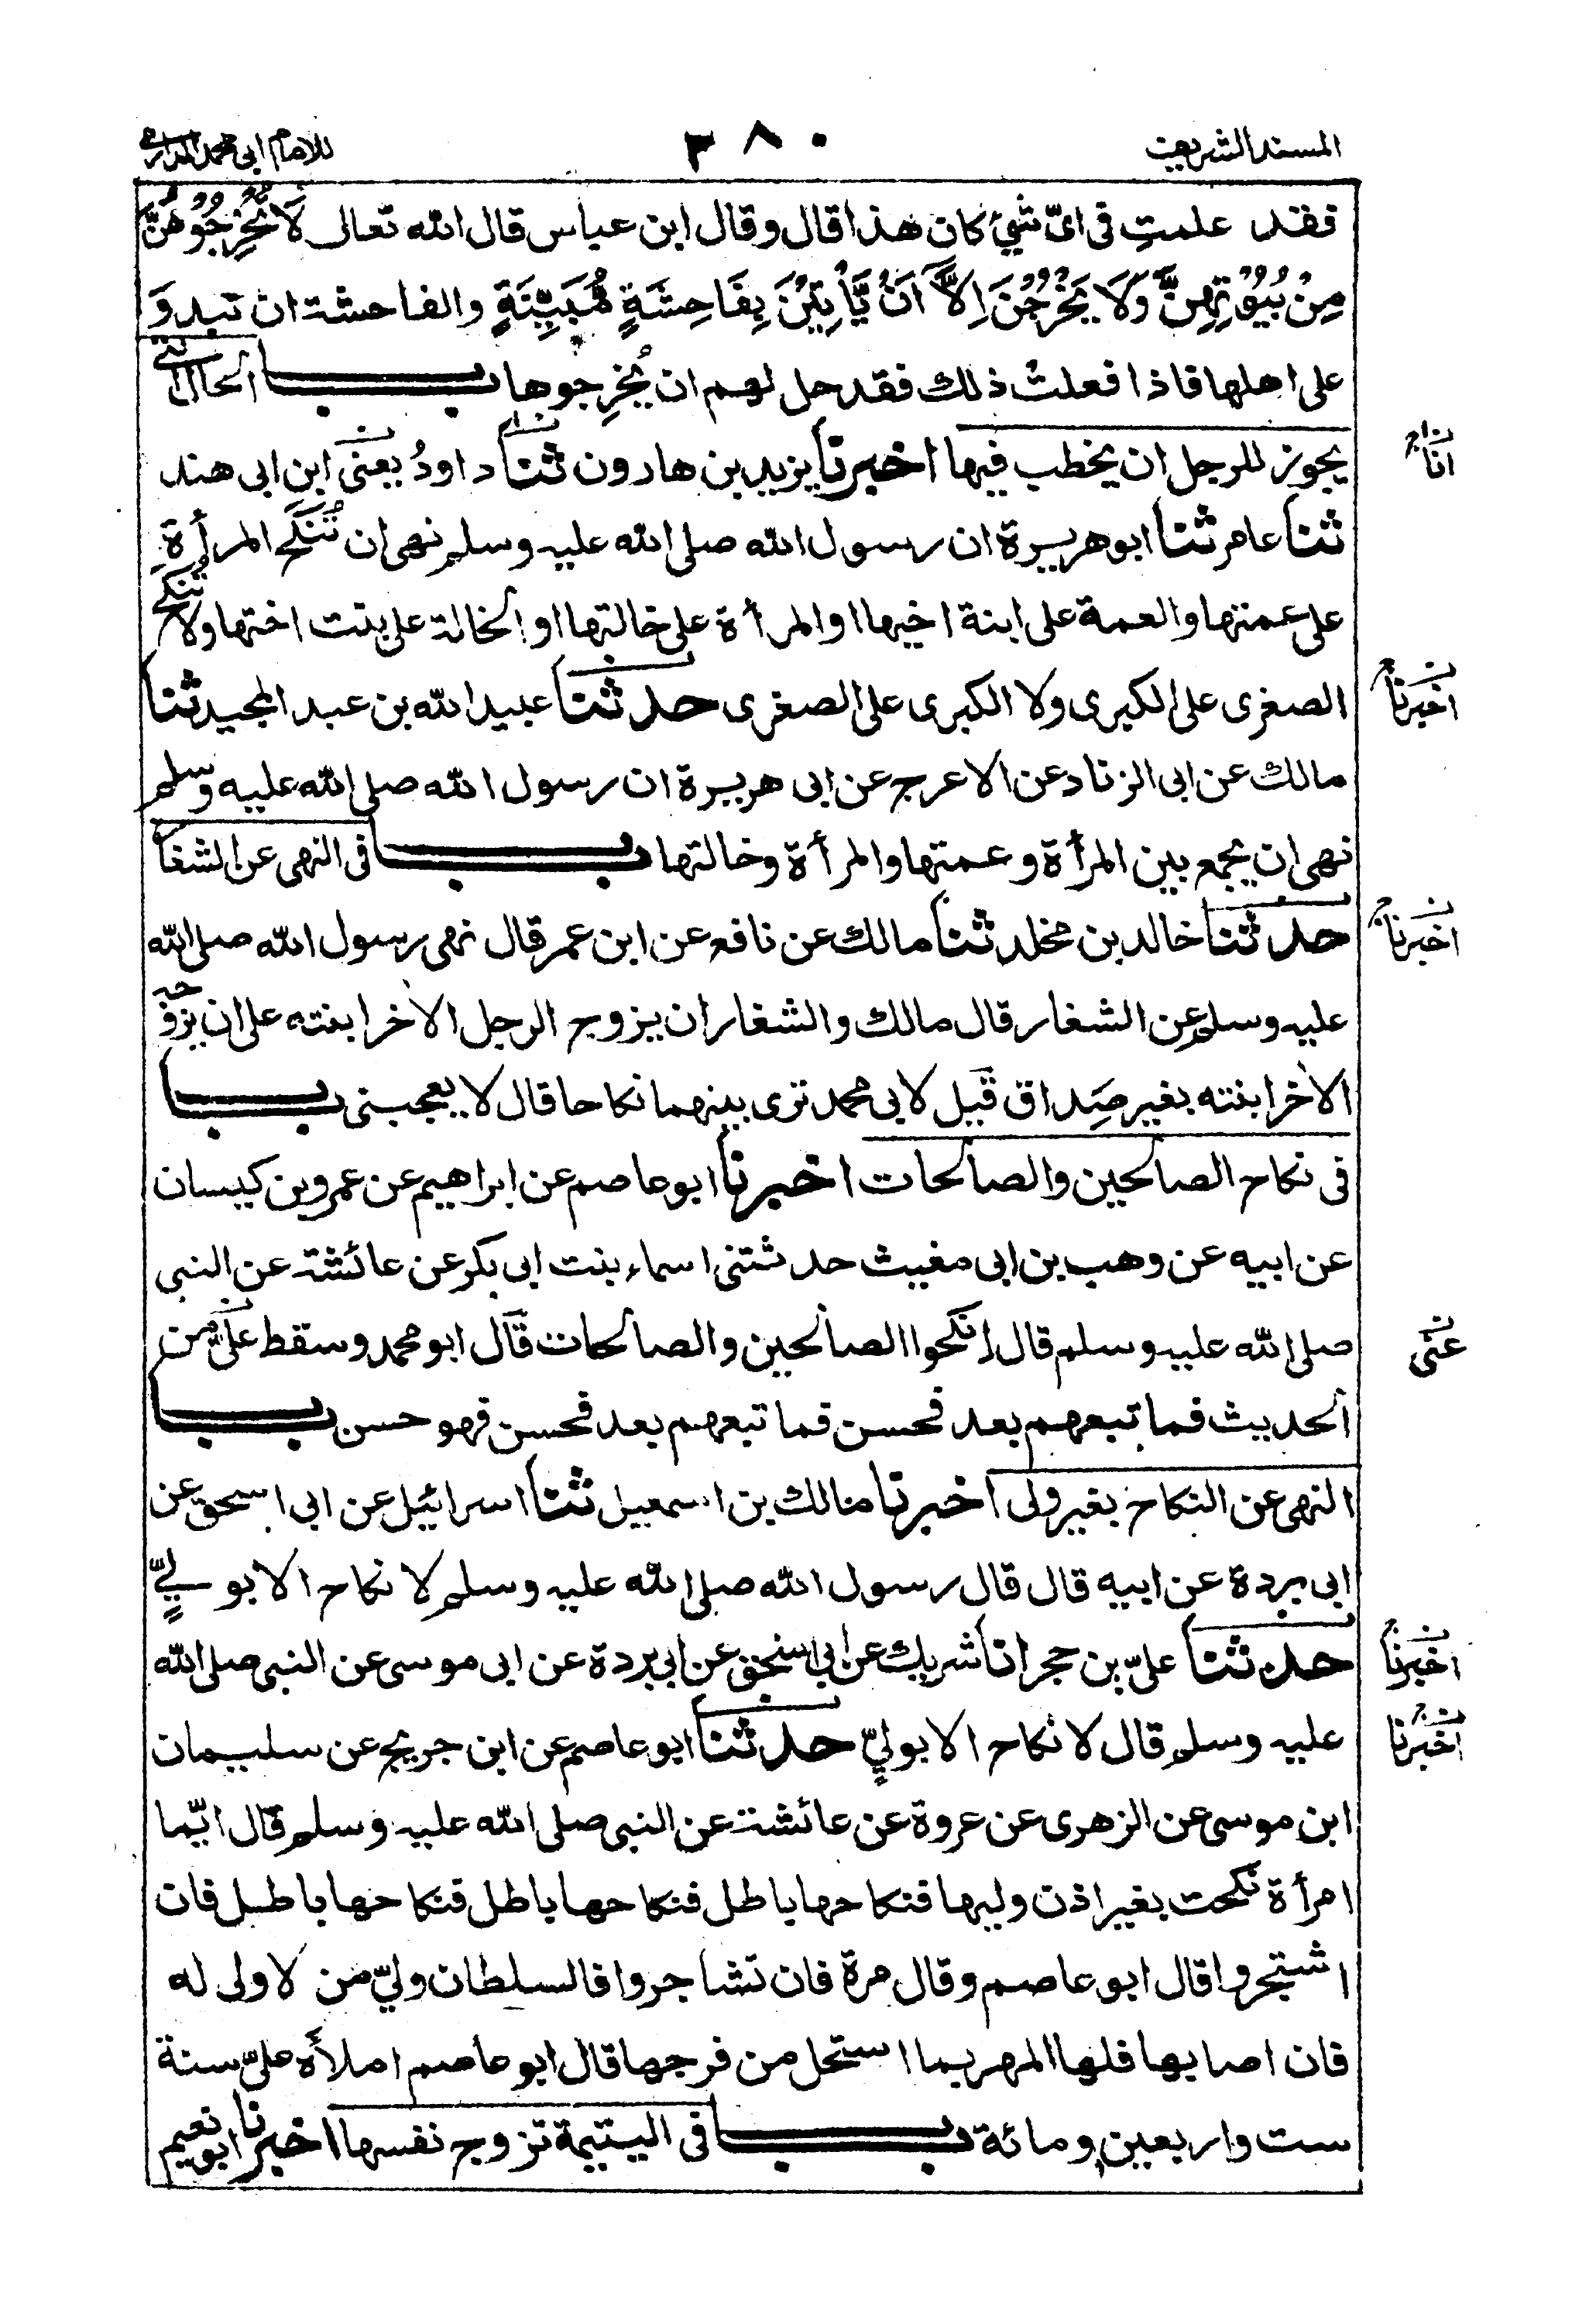 المسند الشريف
٣٨٠
للامام ابى محمد الدارمى
فقد علمتِ فى اىّ شئ كان هذا قال وقال ابن عباس قال الله تعالى لَا تُخْرِجُوْهُنَّ
مِنْۢ بُيُوْتِهِنَّ وَلَا يَخْرُجْنَ اِلَّآ اَنْ يَّأْتِيْنَ بِفَاحِشَةٍ مُّبَيِّنَةٍ والفاحشة ان تبدوَ
على اهلها فاذا فعلتْ ذلك فقد حل لهم ان يُخرِجوها باب الحال التى
يجوز للرجل ان يخطب فيها اخبرنا يزيد بن هارون ثنا داودُ يعنى ابن ابى هند
انا
ثنا عامر ثنا ابو هريرة ان رسول الله صلى الله عليه وسلم نهى ان تُنكَح المرأة
على عمتها والعمة على ابنة اخيها او المرأة على خالتها او الخالة على بنت اختها ولا تُنكح
الصغرى على الكبرى ولا الكبرى على الصغرى حدثنا عبيد الله بن عبد المجيد ثنا
اخبرنا
مالك عن ابى الزناد عن الاعرج عن ابى هريرة ان رسول الله صلى الله عليه وسلم
نهى ان يجمع بين المرأة وعمتها والمرأة وخالتها باب فى النهى عن الشغار
حدثنا خالد بن مخلد ثنا مالك عن نافع عن ابن عمر قال نهى رسول الله صلى الله
اخبرنا
عليه وسلم عن الشغار قال مالك والشغار ان يزوج الرجل الاٰخر ابنته على ان يزوجه
الاٰخر ابنته بغير صِداق قيل لابى محمد ترى بينهما نكاحا قال لا يعجبنى باب
فى نكاح الصالحين والصالحات اخبرنا ابو عاصم عن ابراهيم عن عمرو بن كيسان
عن ابيه عن وهب بن ابى مغيث حدثتنى اسماء بنت ابى بكر عن عائشة عن النبى
صلى الله عليه وسلم قال انكحوا الصالحين والصالحات قال ابو محمد وسقط علىّ من
عنى
الحديث فما تبعهم بعد فحسن فما تبعهم بعد فحسن فهو حسن باب
النهى عن النكاح بغير ولى اخبرنا مالك بن اسمعيل ثنا اسرائيل عن ابى اسحق عن
ابى بردة عن ابيه قال قال رسول الله صلى الله عليه وسلم لا نكاح الا بولىٍّ
حدثنا علىّ بن حجر انا شريك عن ابى اسحق عن ابى بردة عن ابى موسى عن النبى صلى الله
اخبرنا
عليه وسلم قال لا نكاح الا بولىٍّ حدثنا ابو عاصم عن ابن جريج عن سليمان
اخبرنا
ابن موسى عن الزهرى عن عروة عن عائشة عن النبى صلى الله عليه وسلم قال ايّما
امرأة نكحت بغير اذن وليها فنكاحها باطل فنكاحها باطل فنكاحها باطل فان
اشتجروا قال ابو عاصم وقال مرة فان تشاجروا فالسلطان ولىّ من لا ولى له
فان اصابها فلها المهر بما استحل من فرجها قال ابو عاصم املأه علىّ سنة
ست واربعين ومائة باب فى اليتيمة تزوج نفسها اخبرنا ابو نعيم